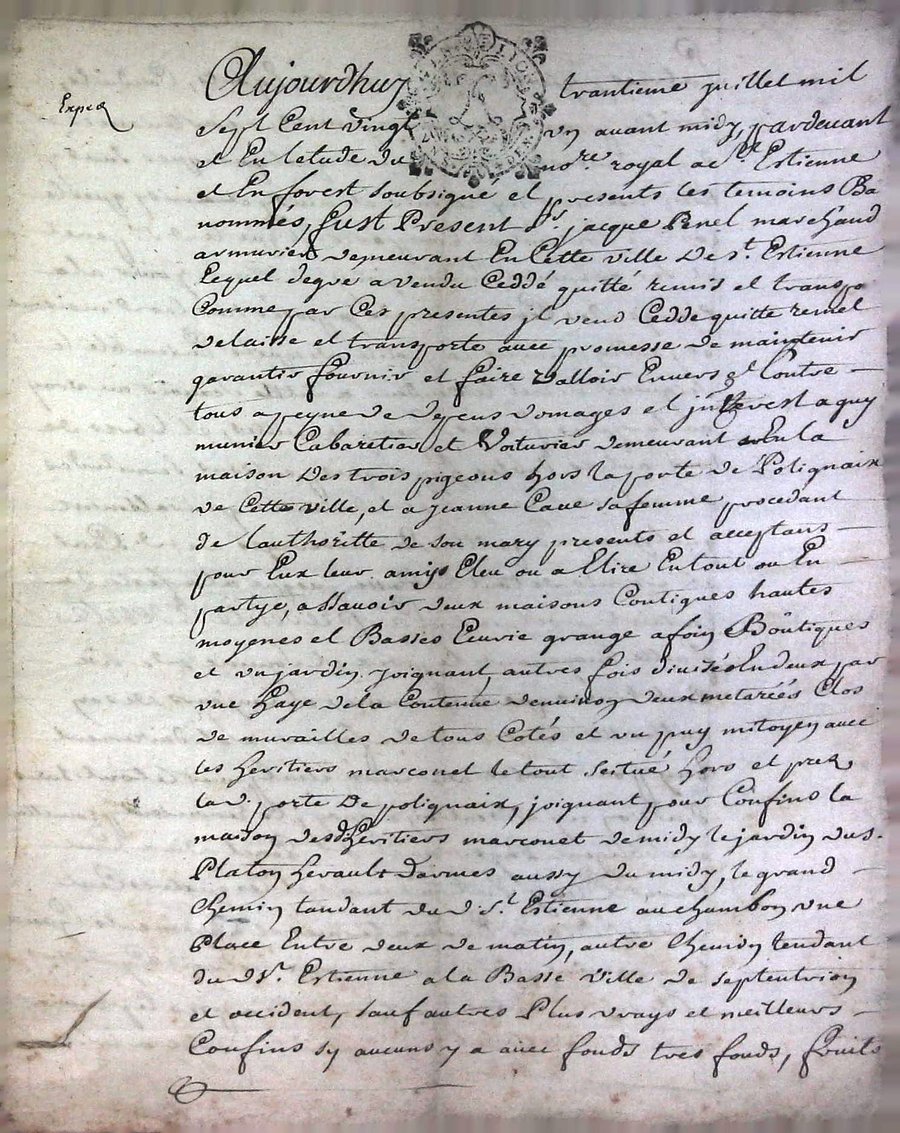 Aujourdhuy trantieme juillet mil
Exped
Sept Cent vingt un avant midy, pardevant
et En letude du nore. royal a St Estienne
et En forest soubsigné et presents les temoins Ba
nommés, fust Present Sr. jacque Penel marchand
armurier demeurant En Cette ville De St. Estienne
Lequel degré a vendu Ceddé quitté remis et transpo
Comme par Ces presentes jl vend Cedde quitte remet
delaisse et transporte avec promesse de maintenir
garantir fournir et faire valloir Envers et Contre
tous a peyne de depens domages et jnterest a guy
munier Cabaretier et Voiturier demeurant En la
maison Des trois pigeons hors la porte de Polignaix
de Cette ville, et a jeanne Cave sa femme procedant
de lauthoritte de son mary presents et acceptans
pour Eux leur amys Eleu ou a Elire En tout ou En
partye, assavoir deux maisons Contigues hautes
moyenes et Basses Ecurie grange a foin Boutiques
et un jardin joignant autres fois divisés En deux par
une haye de la Contenue denviron deux metarées Clos
de murailles de tous Cotés et un puy mitoyen avec
les heritiers marconet le tout seitué hors et prez
la d. porte De polignaix, joignant pour Confins la
maison desd heritiers marconet de midy le jardin du s.
Platon herault Darmes aussy du midy, le grand
Chemin tandant du d. St Estienne au chambon une
Place Entre deux de matin, autre Chemin tendant
du d St. Estienne a la Basse ville de septentrion
et occident, sauf autres Plus vrays et meilleurs
Confins sy aucuns y a avec fonds tres fonds, fruits